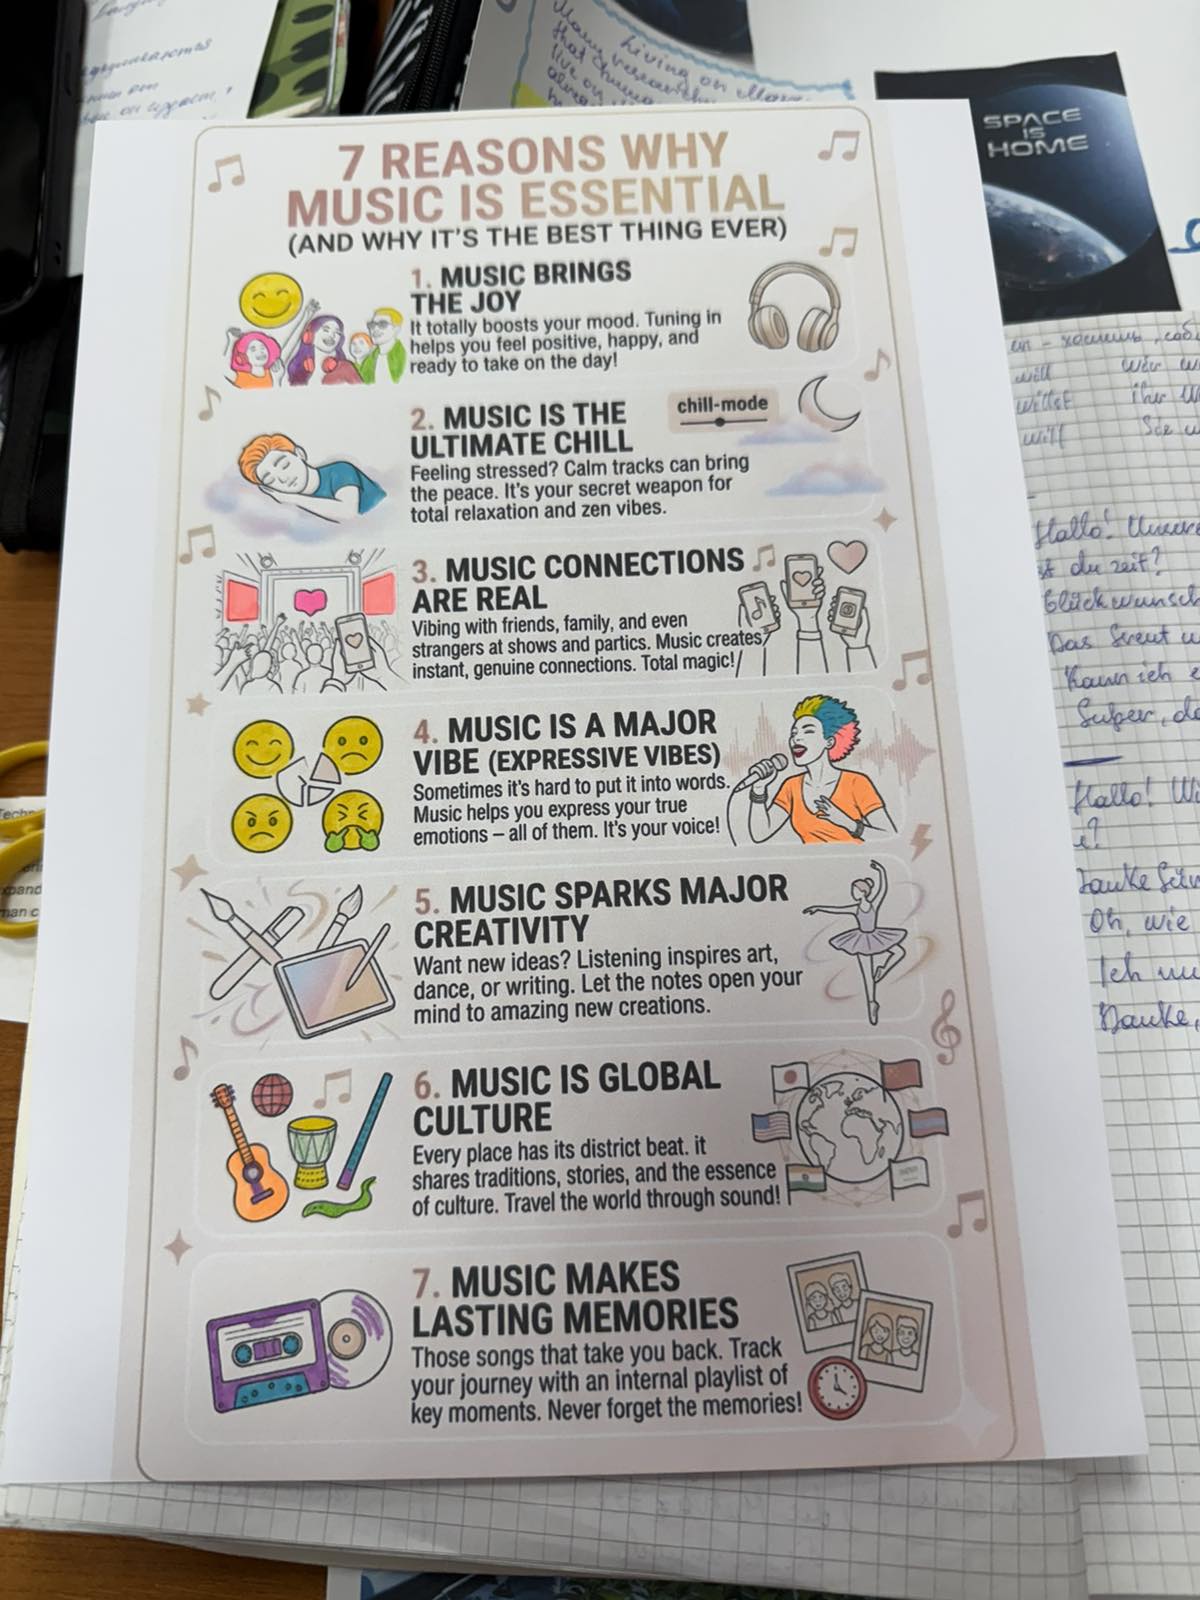 7 REASONS WHY
MUSIC IS ESSENTIAL
(AND WHY IT'S THE BEST THING EVER)
1. MUSIC BRINGS
THE JOY
It totally boosts your mood. Tuning in
helps you feel positive, happy, and
ready to take on the day!
2. MUSIC IS THE
ULTIMATE CHILL
chill-mode
Feeling stressed? Calm tracks can bring
the peace. It's your secret weapon for
total relaxation and zen vibes.
3. MUSIC CONNECTIONS
ARE REAL
Vibing with friends, family, and even
strangers at shows and partics. Music creates
instant, genuine connections. Total magic!
4. MUSIC IS A MAJOR
VIBE (EXPRESSIVE VIBES)
Sometimes it's hard to put it into words.
Music helps you express your true
emotions – all of them. It's your voice!
5. MUSIC SPARKS MAJOR
CREATIVITY
Want new ideas? Listening inspires art,
dance, or writing. Let the notes open your
mind to amazing new creations.
6. MUSIC IS GLOBAL
CULTURE
Every place has its district beat. it
shares traditions, stories, and the essence
of culture. Travel the world through sound!
7. MUSIC MAKES
LASTING MEMORIES
Those songs that take you back. Track
your journey with an internal playlist of
key moments. Never forget the memories!
Living on Mars
that
live on
SPACE
IS
HOME
will
willst ihr
will Sie
Hallo!
du zeit?
Glückwunsch
Das freut
Kann ich
Super,
Hallo!
Danke
Oh, wie
Ich
Danke,